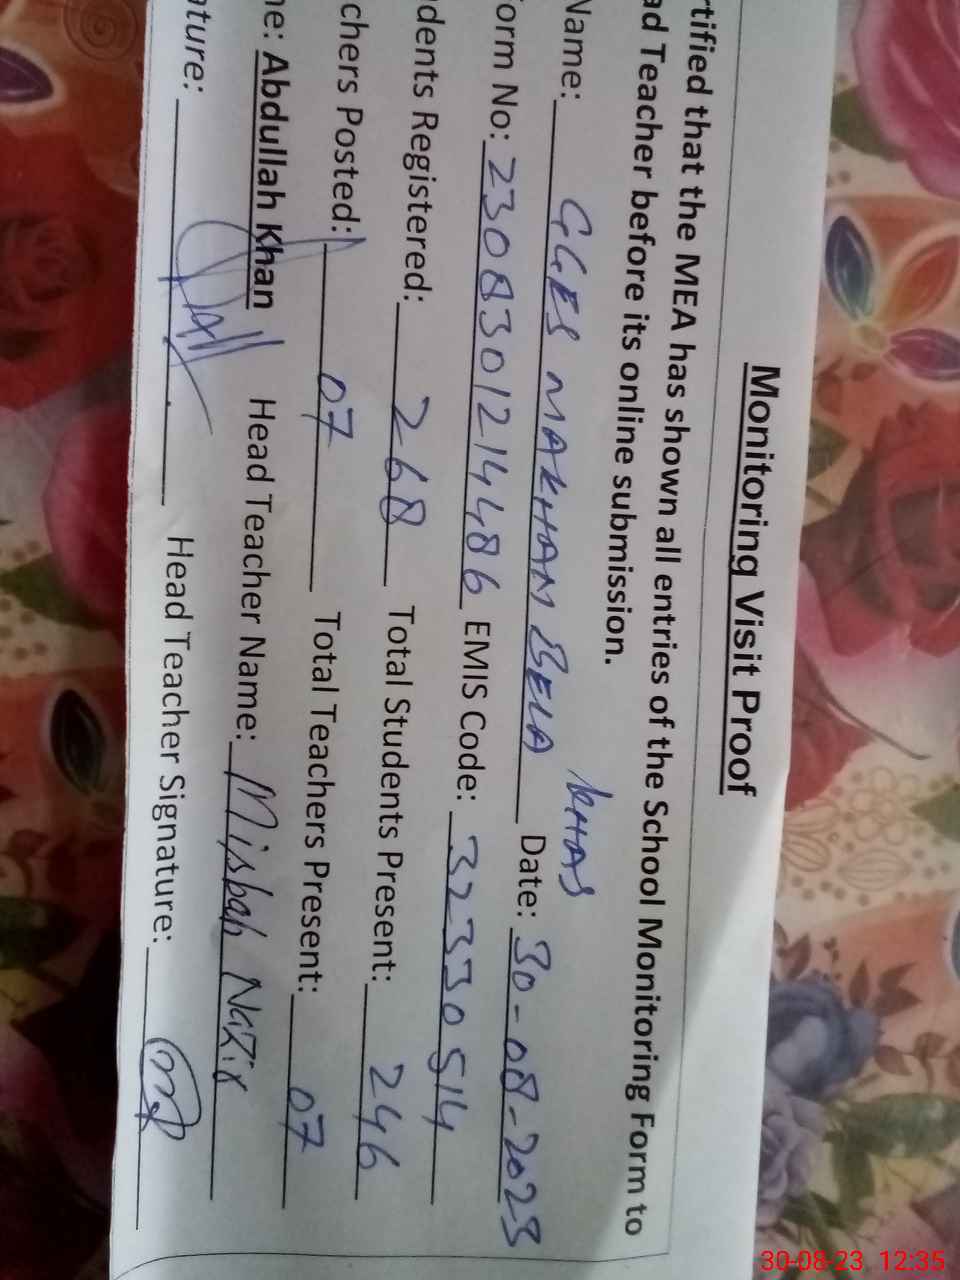 Monitoring Visit Proof
rtified that the MEA has shown all entries of the School Monitoring Form to
ad Teacher before its online submission.
KHAS
Name: GGES MAKHAN BELA Date: 30-08-2023
Form No: 2308301214486 EMIS Code: 32330514
dents Registered: 268 Total Students Present: 246
chers Posted: 07 Total Teachers Present: 07
ne: Abdullah Khan Head Teacher Name: Misbah Nazir
ature: Head Teacher Signature:
30-08-23 12:35